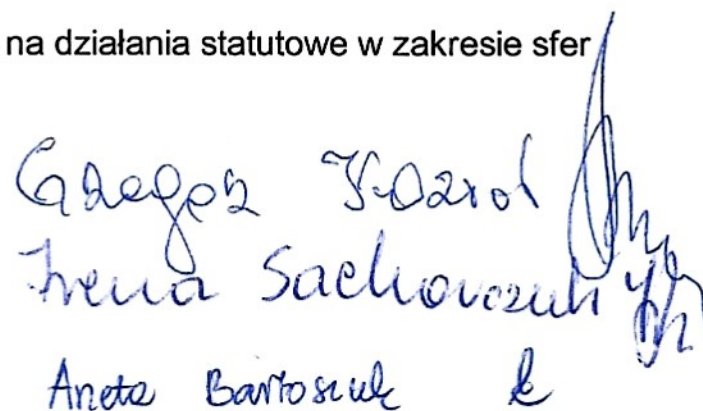 na działania statutowe w zakresie sfer
Grzegorz
Irena Sachowczuk
Aneta Bartosiuk